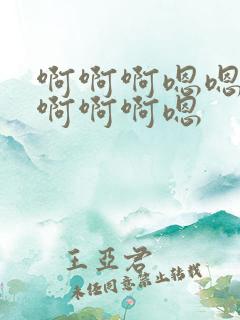 啊啊啊嗯嗯
啊啊啊嗯
王亞君
未经同意禁止转载